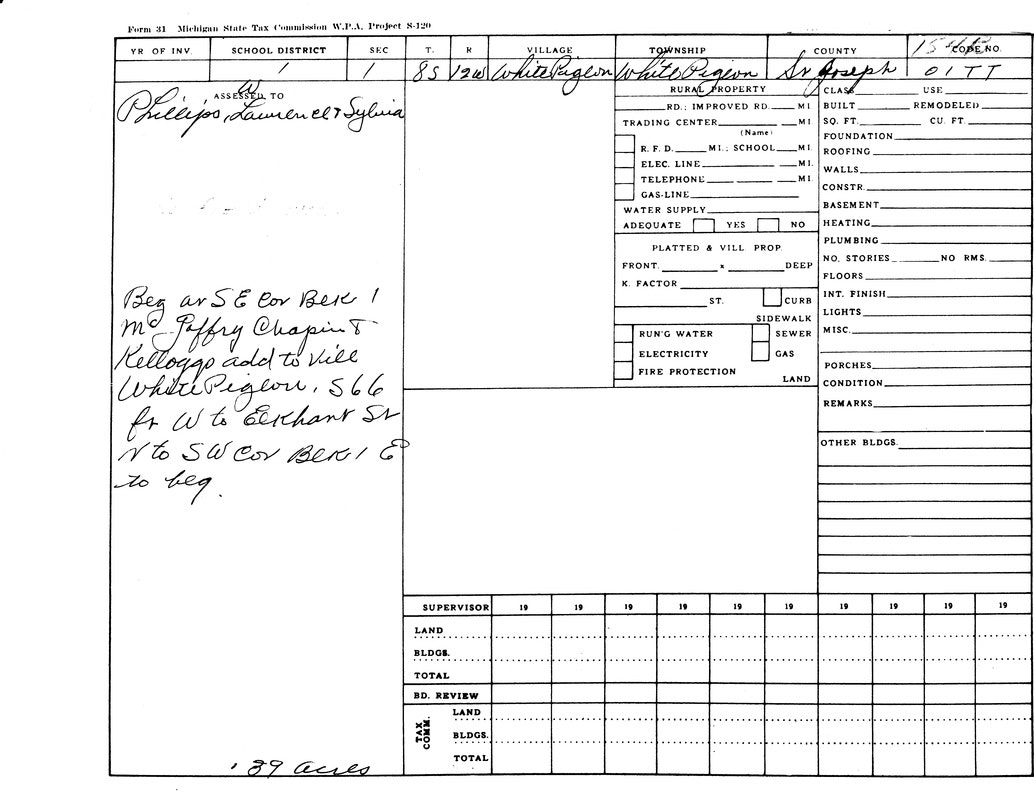 Form 31 Michigan State Tax Commission W.P.A. Project S-120
YR OF INV. SCHOOL DISTRICT SEC T. R VILLAGE TOWNSHIP COUNTY CODE NO.
1 1 8S 12W White Pigeon White Pigeon St Joseph 01TT
ASSESSED TO
W
Phillips, Laurence & Sylvia
Beg at SE Cor Blk 1
Mc Gaffry Chapin &
Kelloggs add to Vill
White Pigeon, S66
ft W to Elkhart St
N to SW Cor Blk 1 E
to beg.
.39 acres
RURAL PROPERTY
RD.; IMPROVED RD. MI
TRADING CENTER MI.
(Name)
R. F. D. MI.; SCHOOL MI.
ELEC. LINE MI.
TELEPHONE MI.
GAS-LINE
WATER SUPPLY
ADEQUATE YES NO
PLATTED & VILL PROP.
FRONT. x DEEP
K. FACTOR
ST. CURB
SIDEWALK
RUN'G WATER SEWER
ELECTRICITY GAS
FIRE PROTECTION
LAND
CLASS USE
BUILT REMODELED
SQ. FT. CU. FT.
FOUNDATION
ROOFING
WALLS
CONSTR.
BASEMENT
HEATING
PLUMBING
NO. STORIES NO RMS.
FLOORS
INT. FINISH
LIGHTS
MISC.
PORCHES
CONDITION
REMARKS
OTHER BLDGS.
SUPERVISOR 19 19 19 19 19 19 19 19 19 19
LAND
BLDGS.
TOTAL
BD. REVIEW
TAX COMM.
LAND
BLDGS.
TOTAL